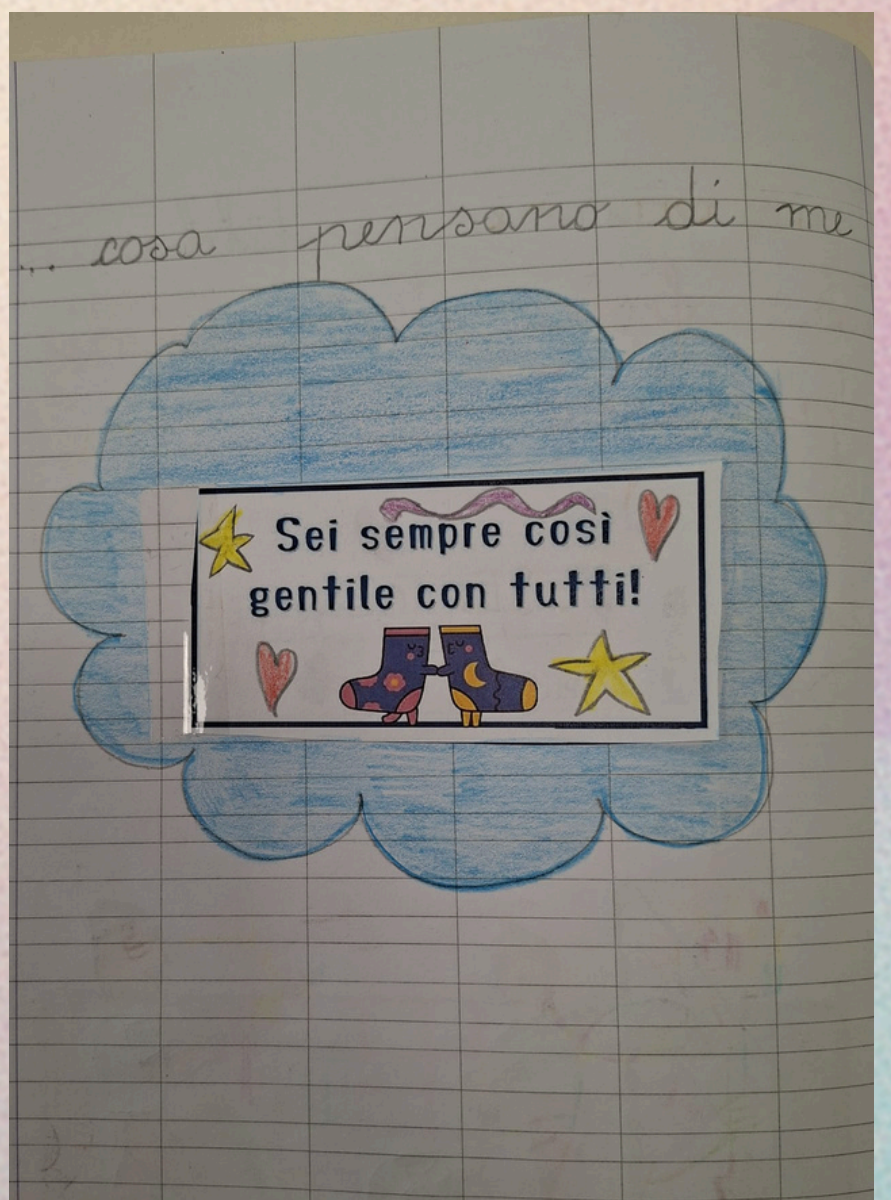 ... cosa pensano di me
Sei sempre così
gentile con tutti!